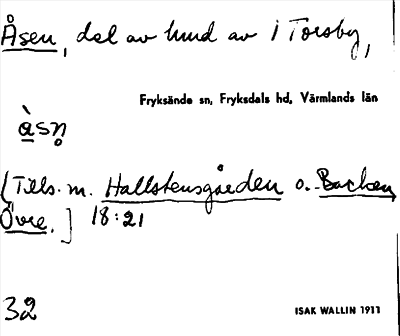 Åsen, del av hmd av 1 Torsby,
Fryksände sn, Fryksdals hd, Värmlands län
àsn̥
[Tills. m. Hallstensgården o. Backen,
Övre.] 18:21
32
ISAK WALLIN 1911